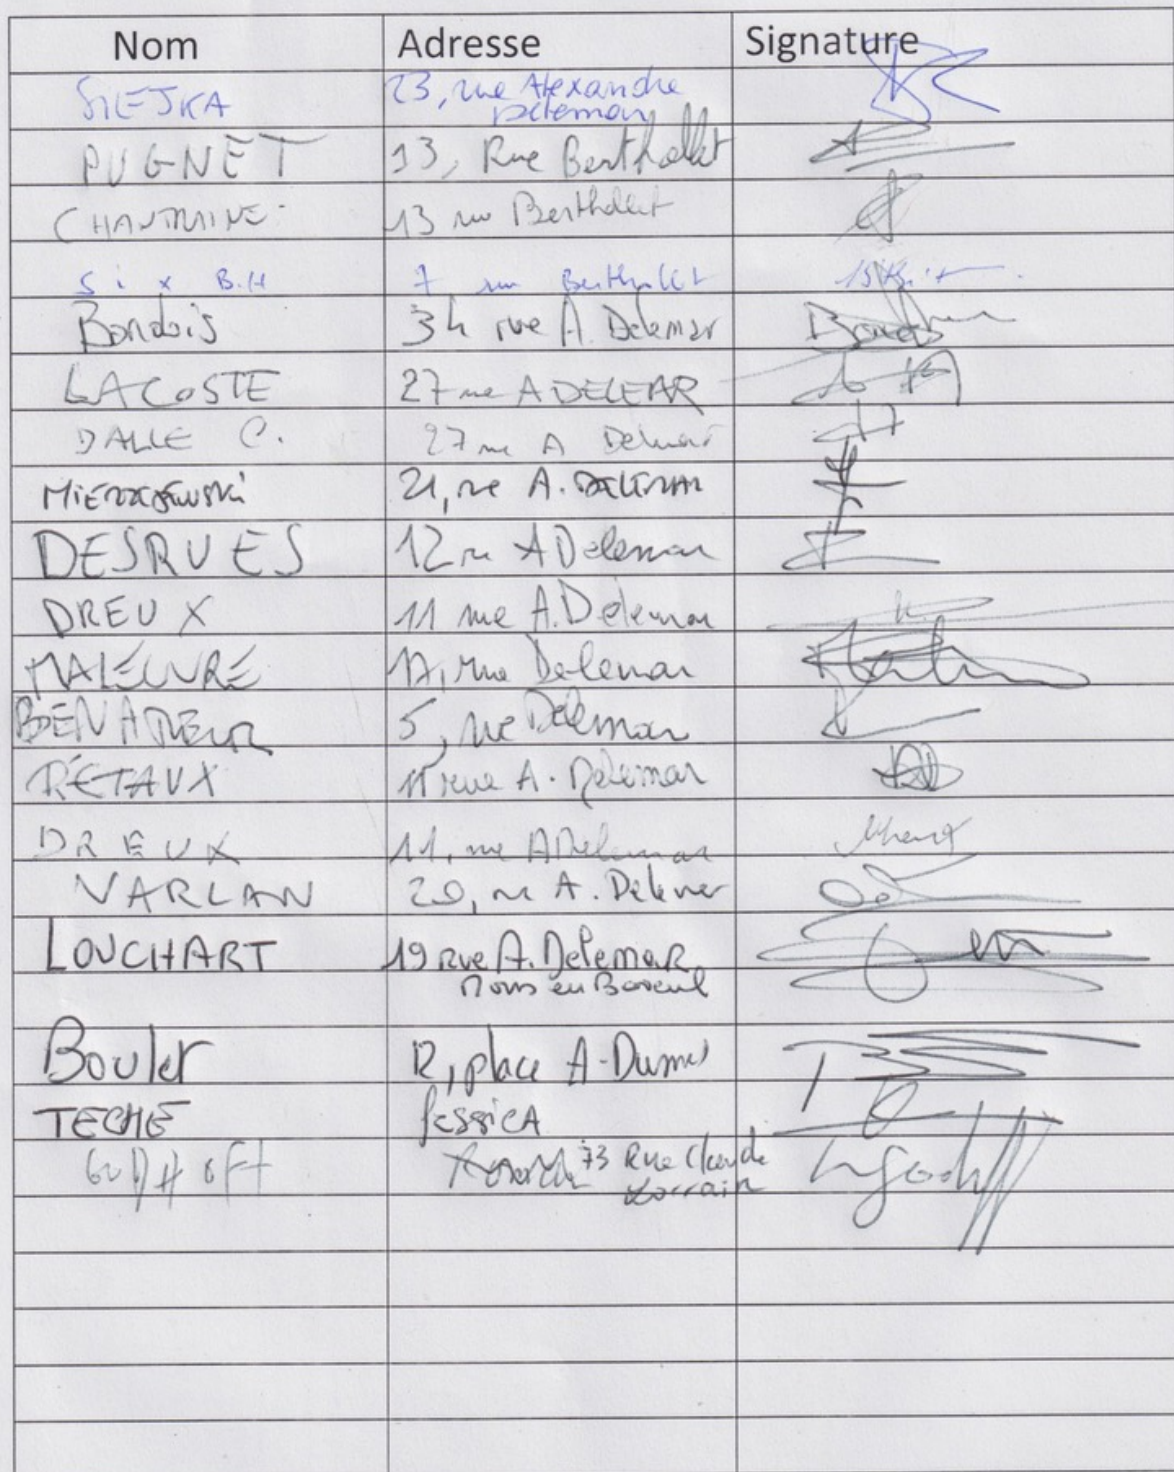 Nom Adresse Signature
SIEJKA 23, rue Alexandre
Delemar
PUGNET 13, Rue Berthollet
CHANTRAINE 13 rue Berthollet
Six B.H 7 rue Berthollet
Bondois 34 rue A. Delemar
LACOSTE 27 rue A DELEMAR
DALLE C. 27 rue A Delemar
21, rue A. DELEMAR
DESRUES 12 rue A Delemar
DREUX 11 rue A. Delemar
MALEUVRE 17, rue Delemar
5, rue Delemar
RÉTAUX 11 rue A. Delemar
DREUX 11, rue A Delemar
VARLAN 20, rue A. Delemar
LOUCHART 19 rue A. Delemar
Mons en Baroeul
Boulet 12, place A. Dumas
TECHE JessicA
73 Rue Claude
Lorrain